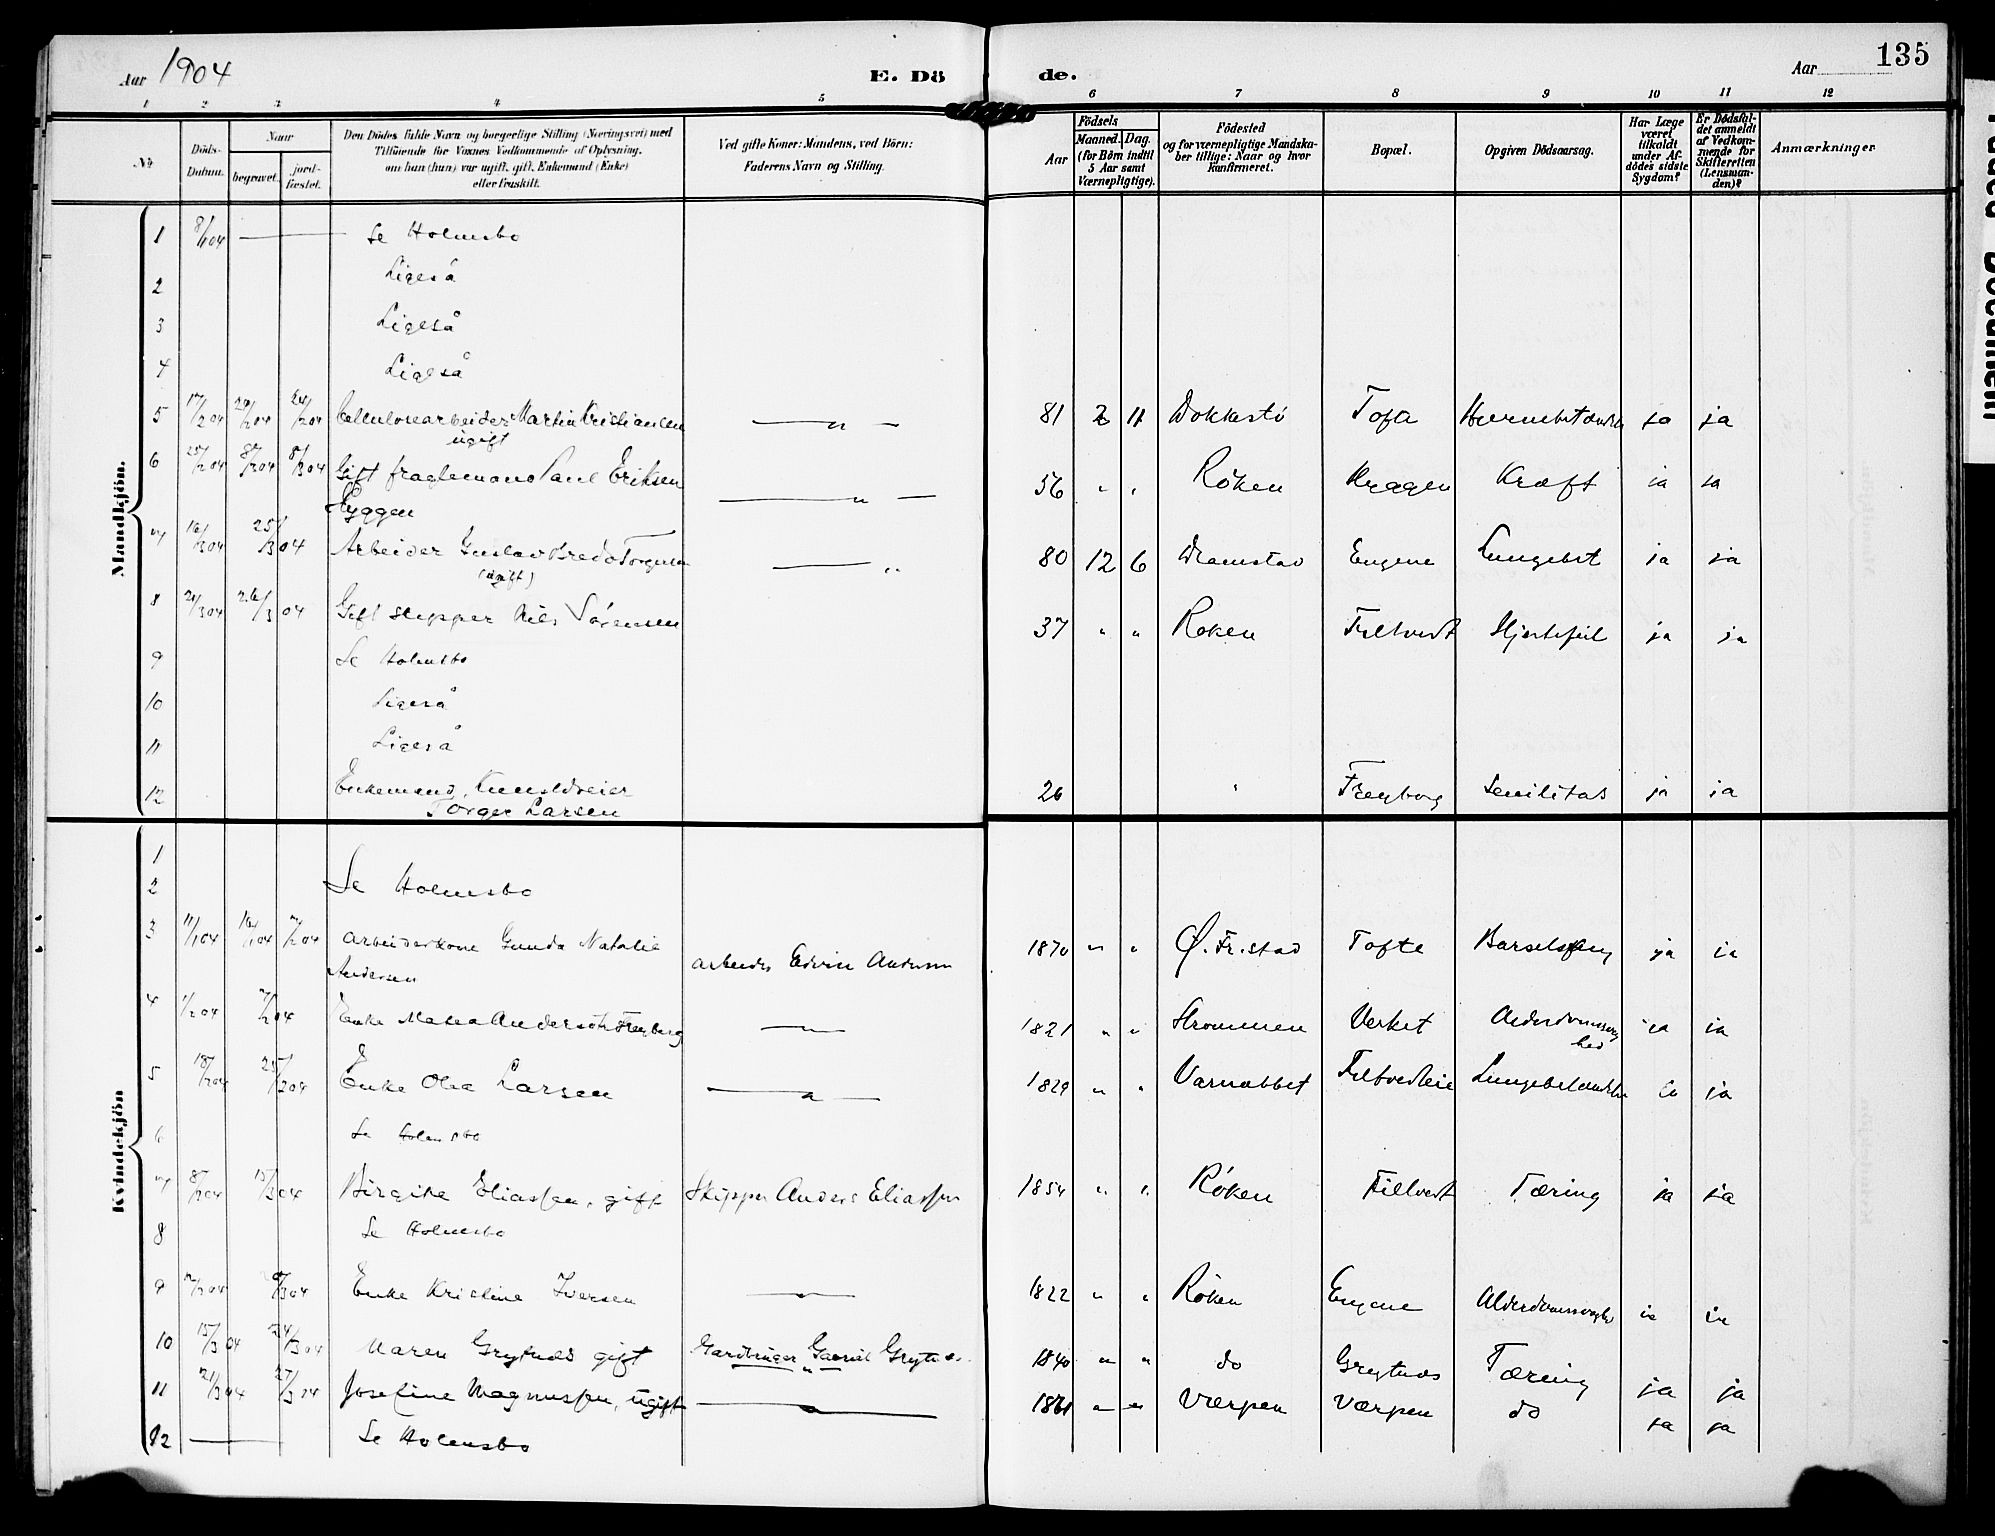 135
Aar 1904
E. Dö
de.
Aar
1 2 3 4 5 6 7 8 9 10 11 12
No
Döds-Datum.
Naar
begravet.
jord-fæstet.
Den Dödes fulde Navn og borgerlige Stilling (Næringsvei) med
Tilföiende for Voxnes Vedkommende af Oplysning,
om han (hun) var ugift, gift, Enkemand (Enke)
eller fraskilt.
Ved gifte Koner: Mandens, ved Börn:
Faderens Navn og Stilling.
Födsels
Aar
Maaned. Dag.
(for Börn indtil
5 Aar samt
Værnepligtige).
Födested
og for værnepligtige Mandska-
ber tillige: Naar og hvor
konfirmeret.
Bopæl.
Opgiven Dödsaarsag.
Har Læge
været
tilkaldt
under Af-
dödes sidste
Sygdom?
Er Dödsfal-
det anmeldt
af Vedkom-
mende for
Skifteretten
(Lensman-
den)?
Anmærkninger
Mandkjön.
1 8/1 04 Se Holmsbo
2 Ligeså
3 Ligeså
4 Ligeså
5 17/2 04 Cellulosearbeider Martin Kristiansen — " — 81 2 11 Tofte ja ja
ugift
6 25/2 04 8/3 04 8/3 04 Gift fragtemand Paul Eriksen — " — 56 " " Røken Kragen Kræft ja ja
Hyggen
7 16/3 04 25/3 04 Arbeider Gustav Bredo Torgersen — " 80 12 6 Dramstad Engene Lungebet ja ja
(ugift)
8 21/3 04 26/3 04 Gift skipper Nils Sörensen 37 " " Røken Filtvedt Hjertefeil ja ja
9 Se Holmsbo
10 Ligeså
11 Ligeså
12 Enkemand, Larsen 26 " Freyborg Senilitas ja ja
Torger Larsen
Kvindekjön
1
2 Se Holmsbo
3 11/1 04 16/1 04 7/2 04 Arbeiderkone Gunda Natalie
Andersen Arbeider Edvin Andersen 1870 " " Ø. Fr.stad Tofte ja ja
4 1/2 04 7/2 04 Enke Maren Andersdtr Freyborg — " — 1821 " " Strømmen Verket Alderdomssvag
hed ja ja
5 18/2 04 25/2 04 Enke Olea Larsen — " — 1829 " " Varnabbet Filtvedteie Lungebetændelse ja ja
6 Se Holmsbo
7 8/3 04 15/3 04 Birgitte Eliassen, gift Skipper Anders Eliassen 1854 " " Røken Filtvedt Tæring ja ja
8 Se Holmsbo
9 04 04 Enke Kristine Iversen — " — 1822 " " Røken Engene Alderdomssvaghed ja ja
10 15/3 04 24/3 04 Maren Grytnes gift Gardbruger Gabriel Grytnes 1840 " " do Grytnes Tæring ja ja
11 21/3 04 27/3 04 Josefine Magnussen, ugift — " — 1861 " " Værpen Værpen do ja ja
12 Se Holmsbo